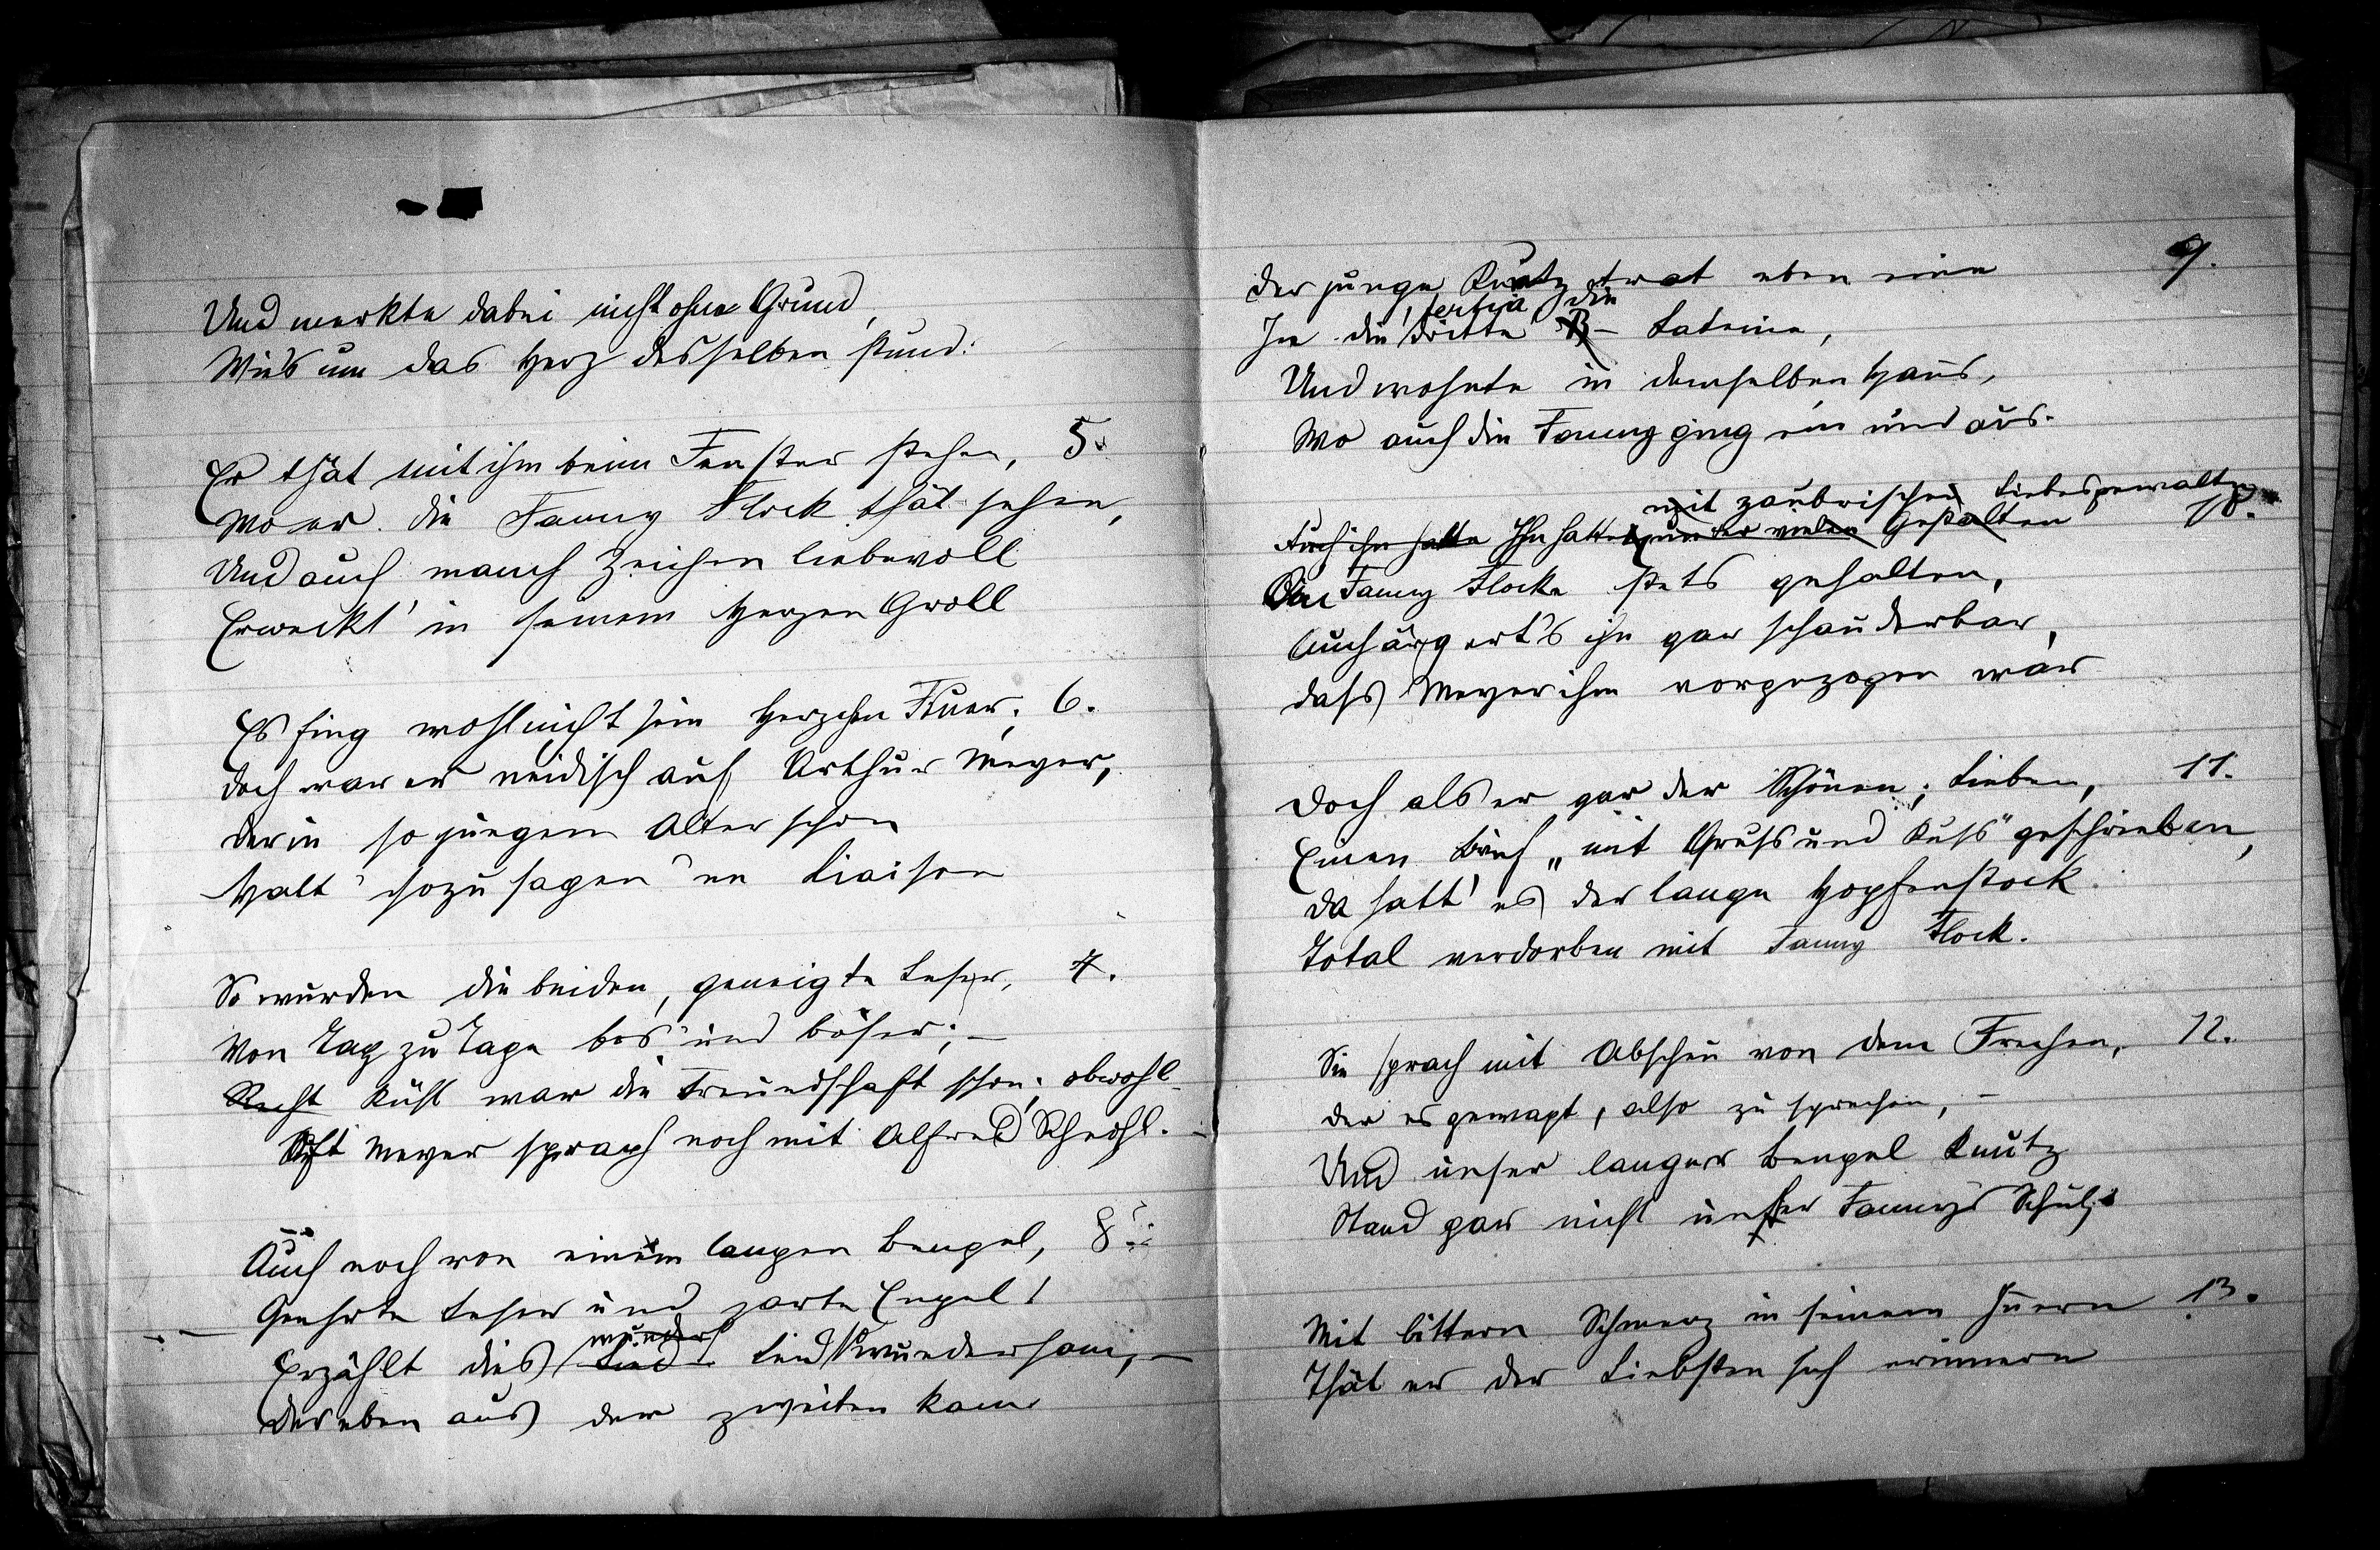 Und merkte dabei nicht ohne Grund,
Wie's um das Herz desselben stund:
Er thät mit ihm beim Fenster stehen, 5.
Wo er die Fanny Flock thät sehen,
Und auch manch Zeichen liebevoll
Erweckt' in seinem Herzen Groll
Es fing wohl nicht sein Herzchen Feuer, 6.
Doch war er neidisch auf Arthur Meyer,
Der in so jungem Alter schon
Halt "sozusagen" ne Liaison
So wurden die beiden, geneigte Leser, 7.
Von Tag zu Tage bös und böser; –
Recht kühl war die Freundschaft schon, obwohl
Oft Meyer sprach noch mit Alfred
Auch noch von einem langen Bengel, 8.
Geehrte Leser und zarte Engel!
wunders
Erzählt dies Lied Lied wundersam, –
Der eben aus der zweiten kam
Der junge Knutz trat eben ein 9.
tertia die
In die dritte B – Lateine,
Und wohnte in demselben Haus,
Wo auch die Fanny ging ein und aus.
mit zaubrischen Liebesgewalten
Auch ihn hatte Ihn hatte unter vielen Gestalten 10.
Die Fanny Flocke stets gehalten,
Auch ärgert's ihn gar schauderbar,
Dass Meyer ihm vorgezogen war
Doch als er gar der Schönen, Lieben, 11.
Einen Brief „mit Gruss und Kuss" geschrieben,
Da hatt' es der lange Hopfenstock
Total verdorben mit Fanny Flock.
Sie sprach mit Abscheu von dem Frechen, 12.
Der es gewagt, also zu sprechen, –
Und unser langer Bengel Knutz
Stand gar nicht unter Fannys Schutz
Mit bittern Schmerz in seinem Innern 13.
Thät er der Liebsten sich erinnern